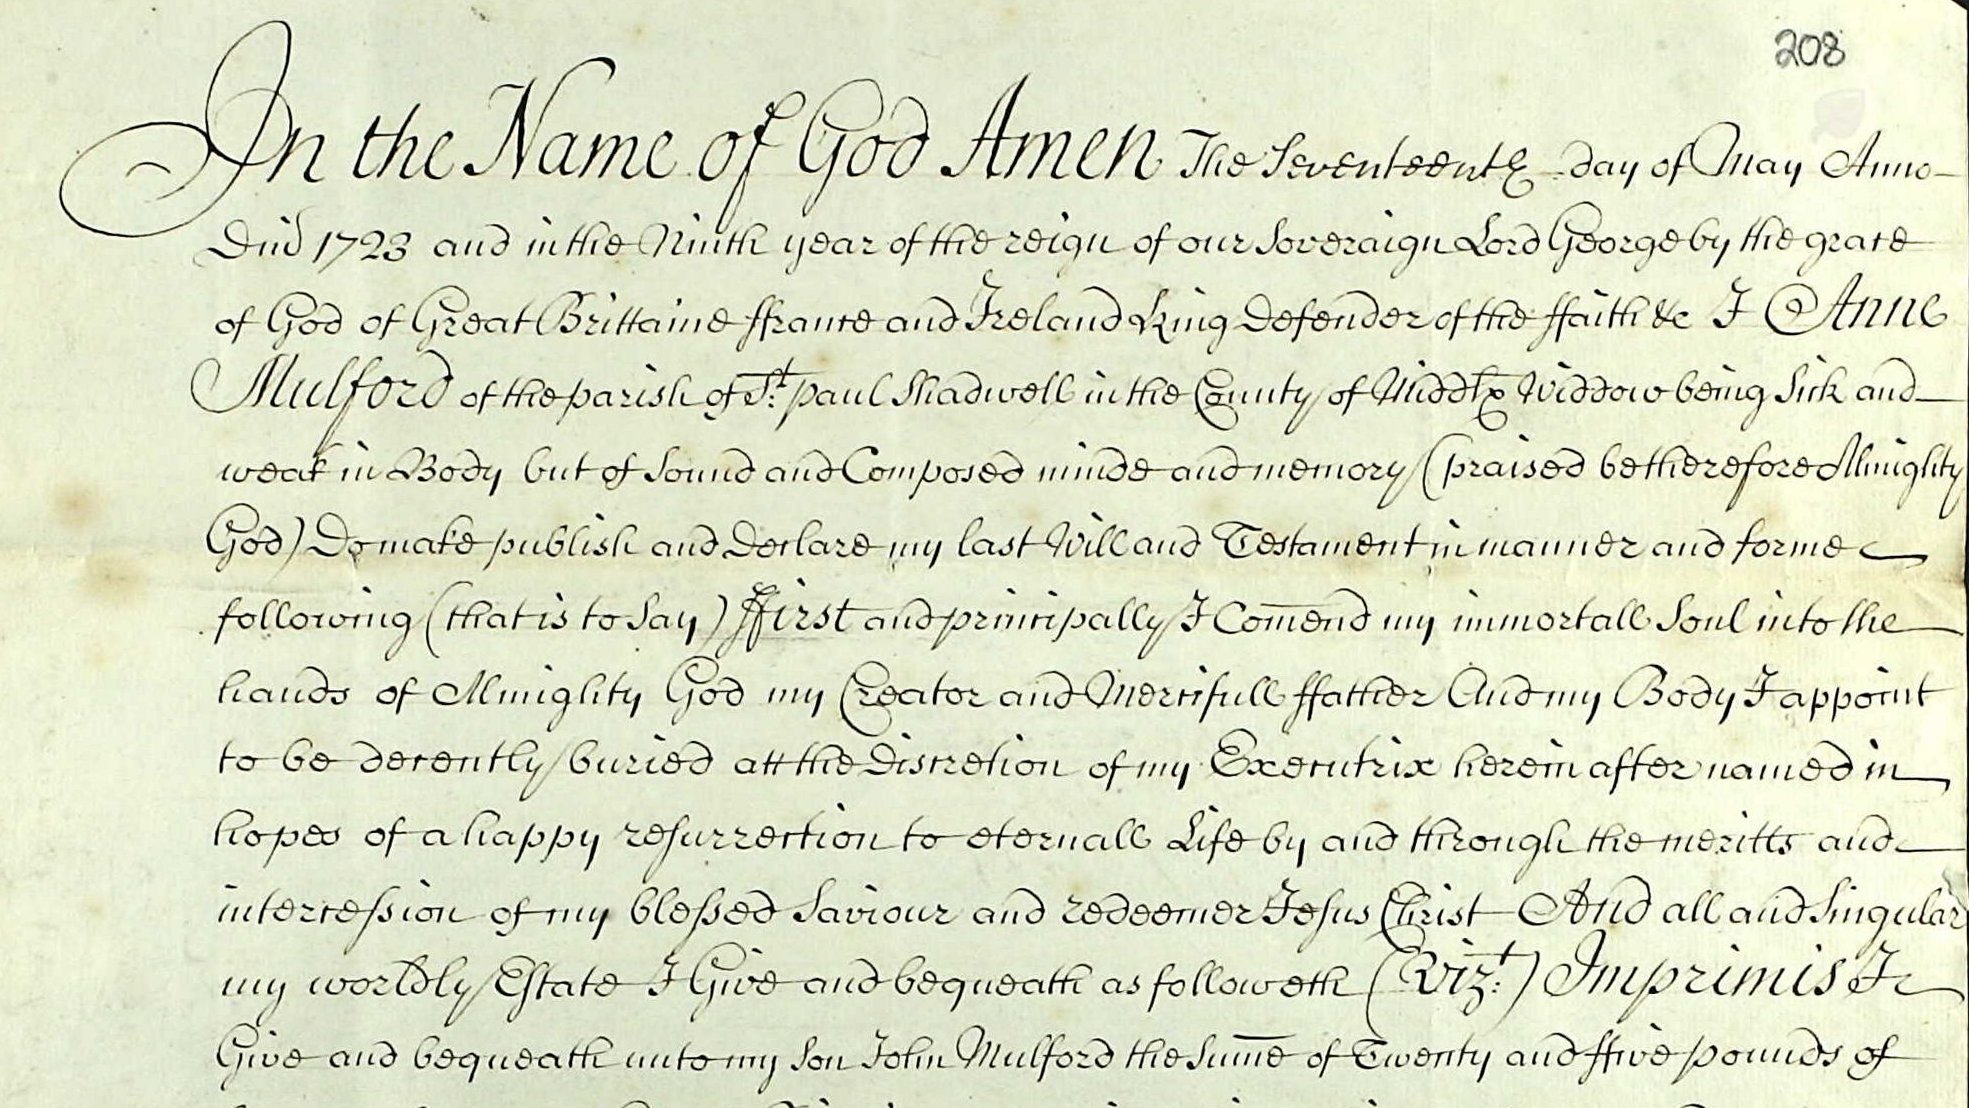 208
In the Name of God Amen The Seventeenth day of May Anno
Dni 1723 and in the Ninth year of the reign of our Soveraign Lord George by the grace
of God of Great Brittaine ffrance and Ireland King Defender of the ffaith &c I Anne
Mulford of the parish of St. paul Shadwell in the County of Middx Widdow being Sick and
weak in Body but of Sound and Composed minde and memory (praised be therefore Almighty
God) Do make publish and Declare my last Will and Testament in manner and forme
following (that is to Say) ffirst and principally I Com̄end my immortall Soul into the
hands of Almighty God my Creator and Mercifull ffather And my Body I appoint
to be decently buried att the Discretion of my Executrix herein after named in
hopes of a happy resurrection to eternall Life by and through the meritts and
intercession of my blessed Saviour and redeemer Jesus Christ And all and Singular
my worldly Estate I Give and bequeath as followeth (Vizt.) Imprimis I
Give and bequeath unto my Son John Mulford the Sum̄e of Twenty and ffive pounds of